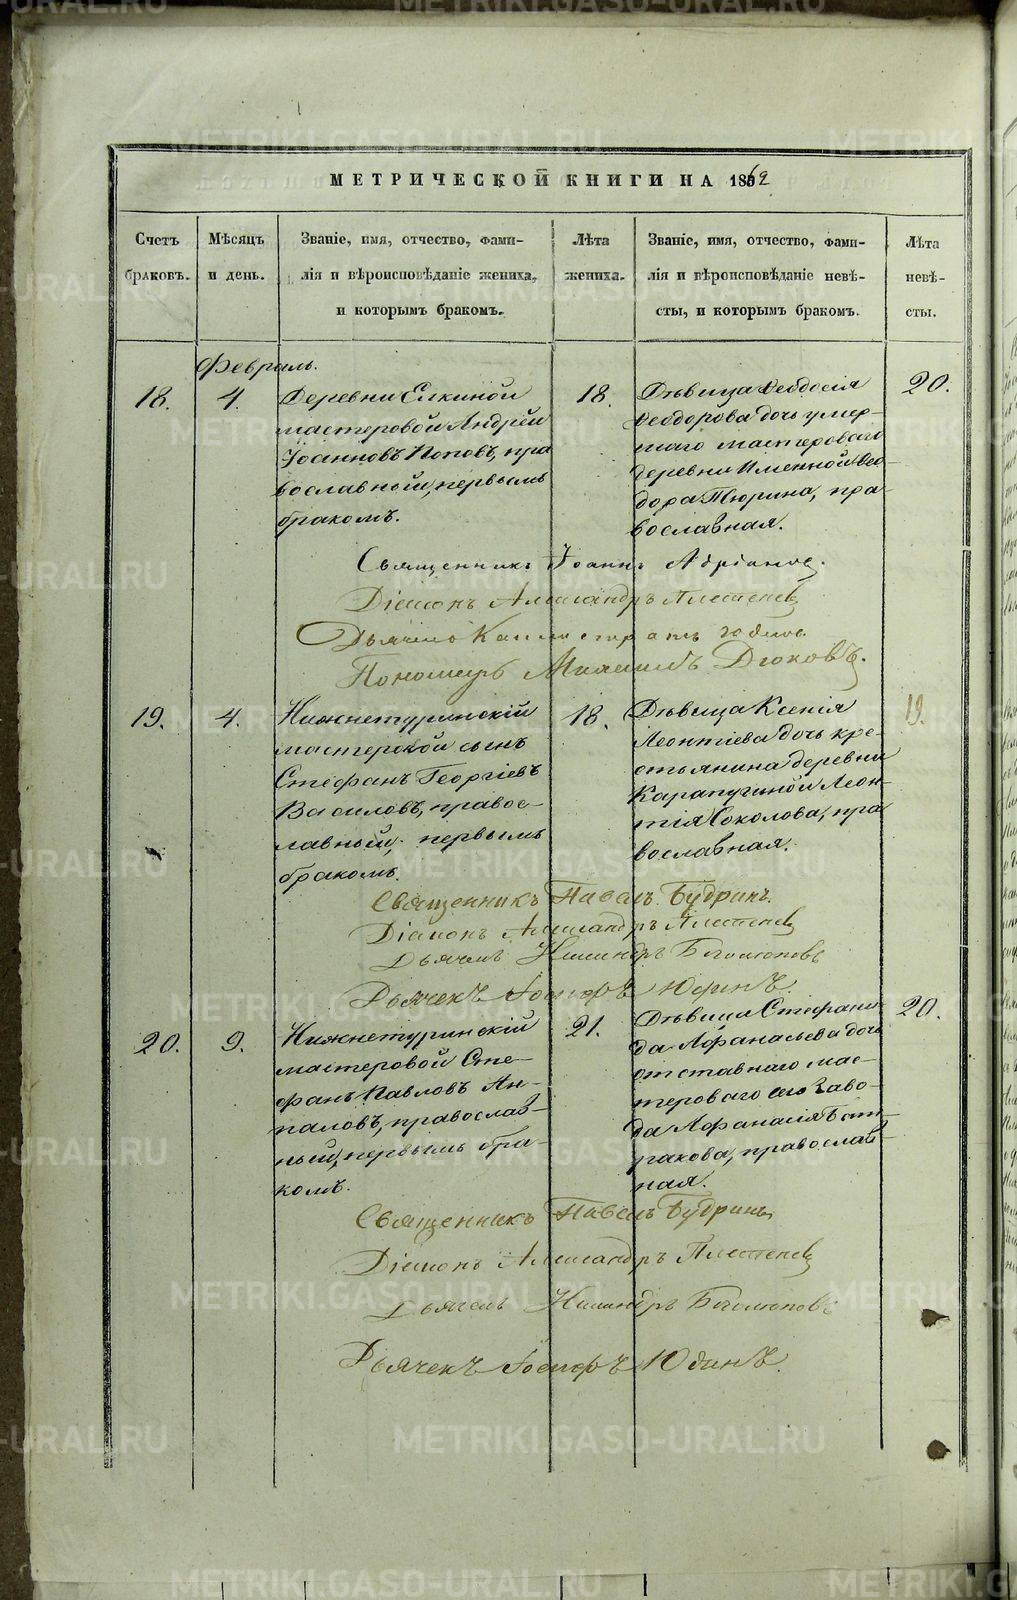 МЕТРИЧЕСКОЙ КНИГИ НА 1862
Счетъ браковъ.
Мѣсяцъ и день.
Званіе, имя, отчество, фами-
лія и вѣроисповѣданіе жениха,
и которымъ бракомъ.
Лѣта жениха.
Званіе, имя, отчество, фами-
лія и вѣроисповѣданіе невѣ-
сты, и которымъ бракомъ.
Лѣта невѣ-
сты.
Февраль.
18.
4.
Деревни Елкиной
мастеровой Андрей
Іоанновъ Поповъ, пра
вославный, первымъ
бракомъ.
18.
Дѣвица Ѳеодосія
Ѳеодорова дочь умер-
шаго мастероваго
деревни Именной Ѳео-
дора Тюрина, пра-
вославная.
20.
Священникъ Іоаннъ Адріановъ.
Діаконъ Александръ
Дьячекъ Каллистратъ
Пономарь Дюковъ.
19.
4.
Нижнетуринскій
мастерской сынъ
Стефанъ Георгіевъ
Василовъ, правос-
лавный, первымъ
бракомъ.
18.
Дѣвица Ксенія
Леонтіева дочь кре-
стьянина деревни
Карапугиной Леон-
тія Соколова, пра
вославная.
19.
Священникъ Павелъ Будринъ.
Діаконъ Александръ
Дьячекъ
Дьячекъ Іосифъ Юдинъ.
20.
9.
Нижнетуринскій
мастеровой Сте-
фанъ Павловъ Ан-
паловъ, православ-
ный, первымъ бра-
комъ.
21.
Дѣвица Стефани
да Афанасьева дочь
отставнаго мас-
тероваго сего заво-
да Афанасія
православ-
ная.
20.
Священникъ Павелъ Будринъ
Діаконъ Александръ
Дьячекъ
Дьячекъ Іосифъ Юдинъ.
METRIKI.GASO-URAL.RU